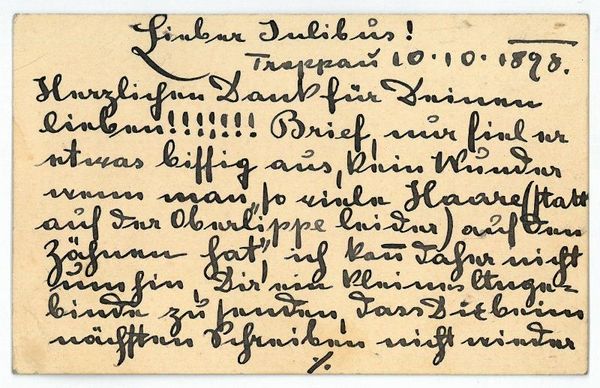 Lieber Julibus!
Troppau 10.10.1898.
Herzlichen Dank für Deinen
lieben!!!!!!! Brief, nur fiel er
etwas biffig aus, kein Wunder
wenn man „so viele Haare (statt
auf der Oberlippe leider) auf den
Zähnen hat“, ich kann daher nicht
umhin, Dir ein kleines Ange-
binde zu senden, dass Du beim
nächsten Schreiben nicht wieder
%.